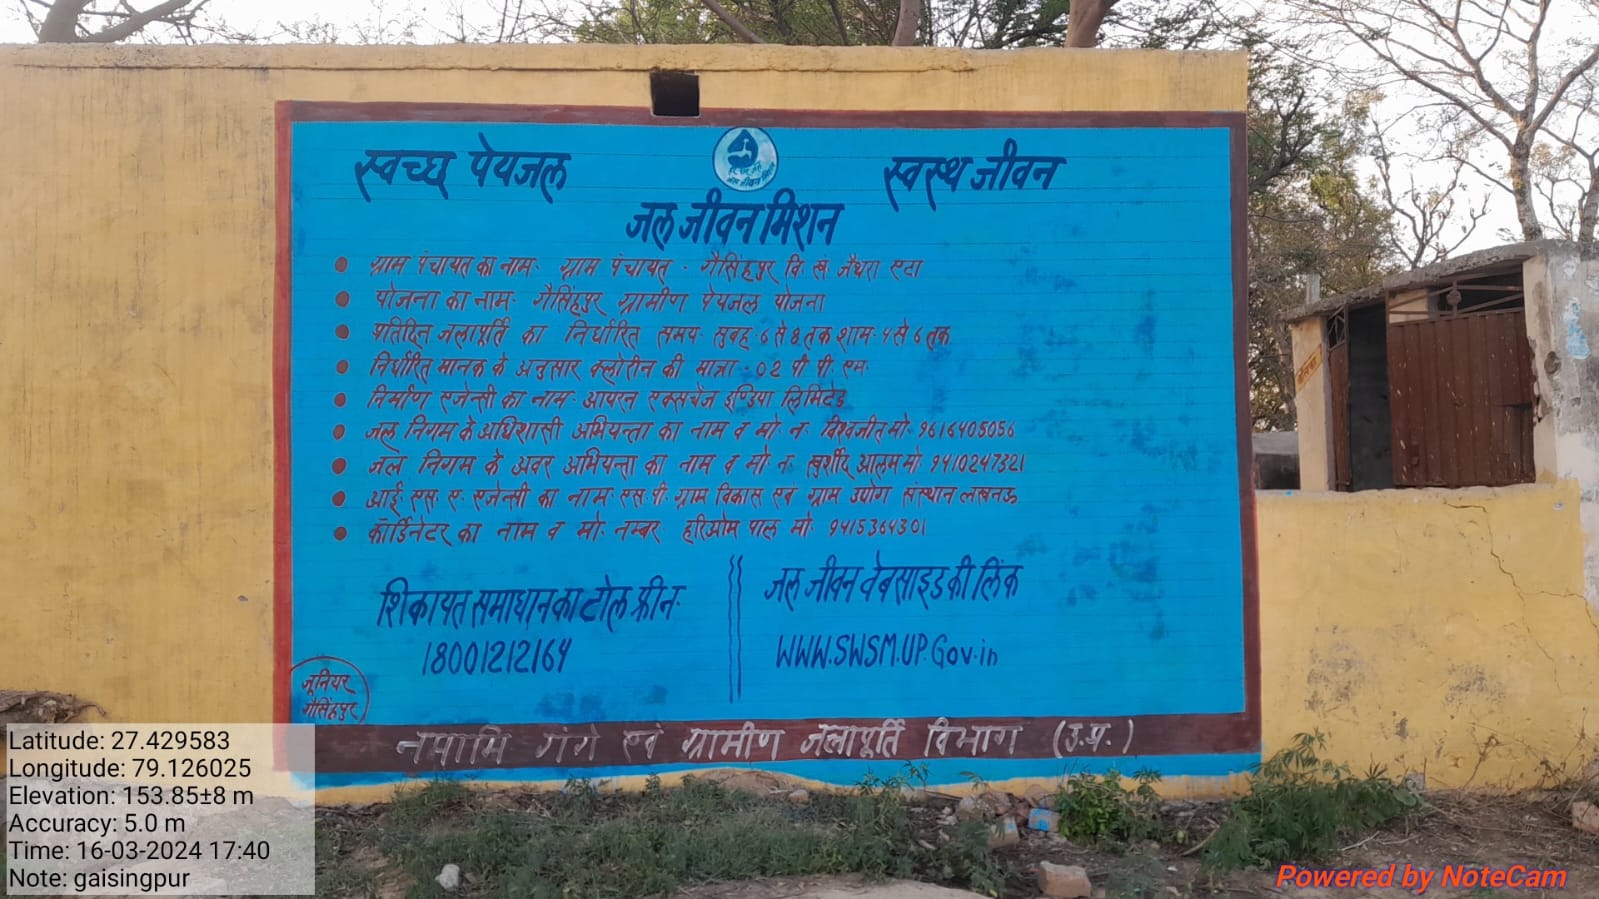 स्वच्छ पेयजल
स्वस्थ जीवन
हर घर जल
जल जीवन मिशन
जल जीवन मिशन
ग्राम पंचायत का नाम- ग्राम पंचायत - गैसिंहपुर वि. खं जैथरा एटा
योजना का नाम- गैसिंहपुर ग्रामीण पेयजल योजना
प्रतिदिन जलापूर्ति का निर्धारित समय- सुबह- 6 से 8 तक शाम- 4 से 6 तक
निर्धारित मानक के अनुसार क्लोरीन की मात्रा - 02 पी पी. एम.
निर्माण एजेन्सी का नाम- आयरन एक्सचेंज इण्डिया लिमिटेड
जल निगम के अधिशासी अभियन्ता का नाम व मो. न. विश्वजीत मो- 9616405056
जल निगम के अवर अभियन्ता का नाम व मो. न. खुर्शीद आलम मो. 9410247321
आई. एस. ए. एजेन्सी का नाम- एस. पी. ग्राम विकास एवं ग्राम उद्योग संस्थान लखनऊ
कॉर्डिनेटर का नाम व मो. नम्बर हरिओम पाल मो. 9415364301
शिकायत समाधान का टोल फ्री न.
18001212164
जल जीवन वेबसाइड की लिंक
WWW.SWSM.UP.Gov.in
जूनियर
गैसिंहपुर
नमामि गंगे एवं ग्रामीण जलापूर्ति विभाग (उ.प्र.)
Latitude: 27.429583
Longitude: 79.126025
Elevation: 153.85±8 m
Accuracy: 5.0 m
Time: 16-03-2024 17:40
Note: gaisingpur
Powered by NoteCam